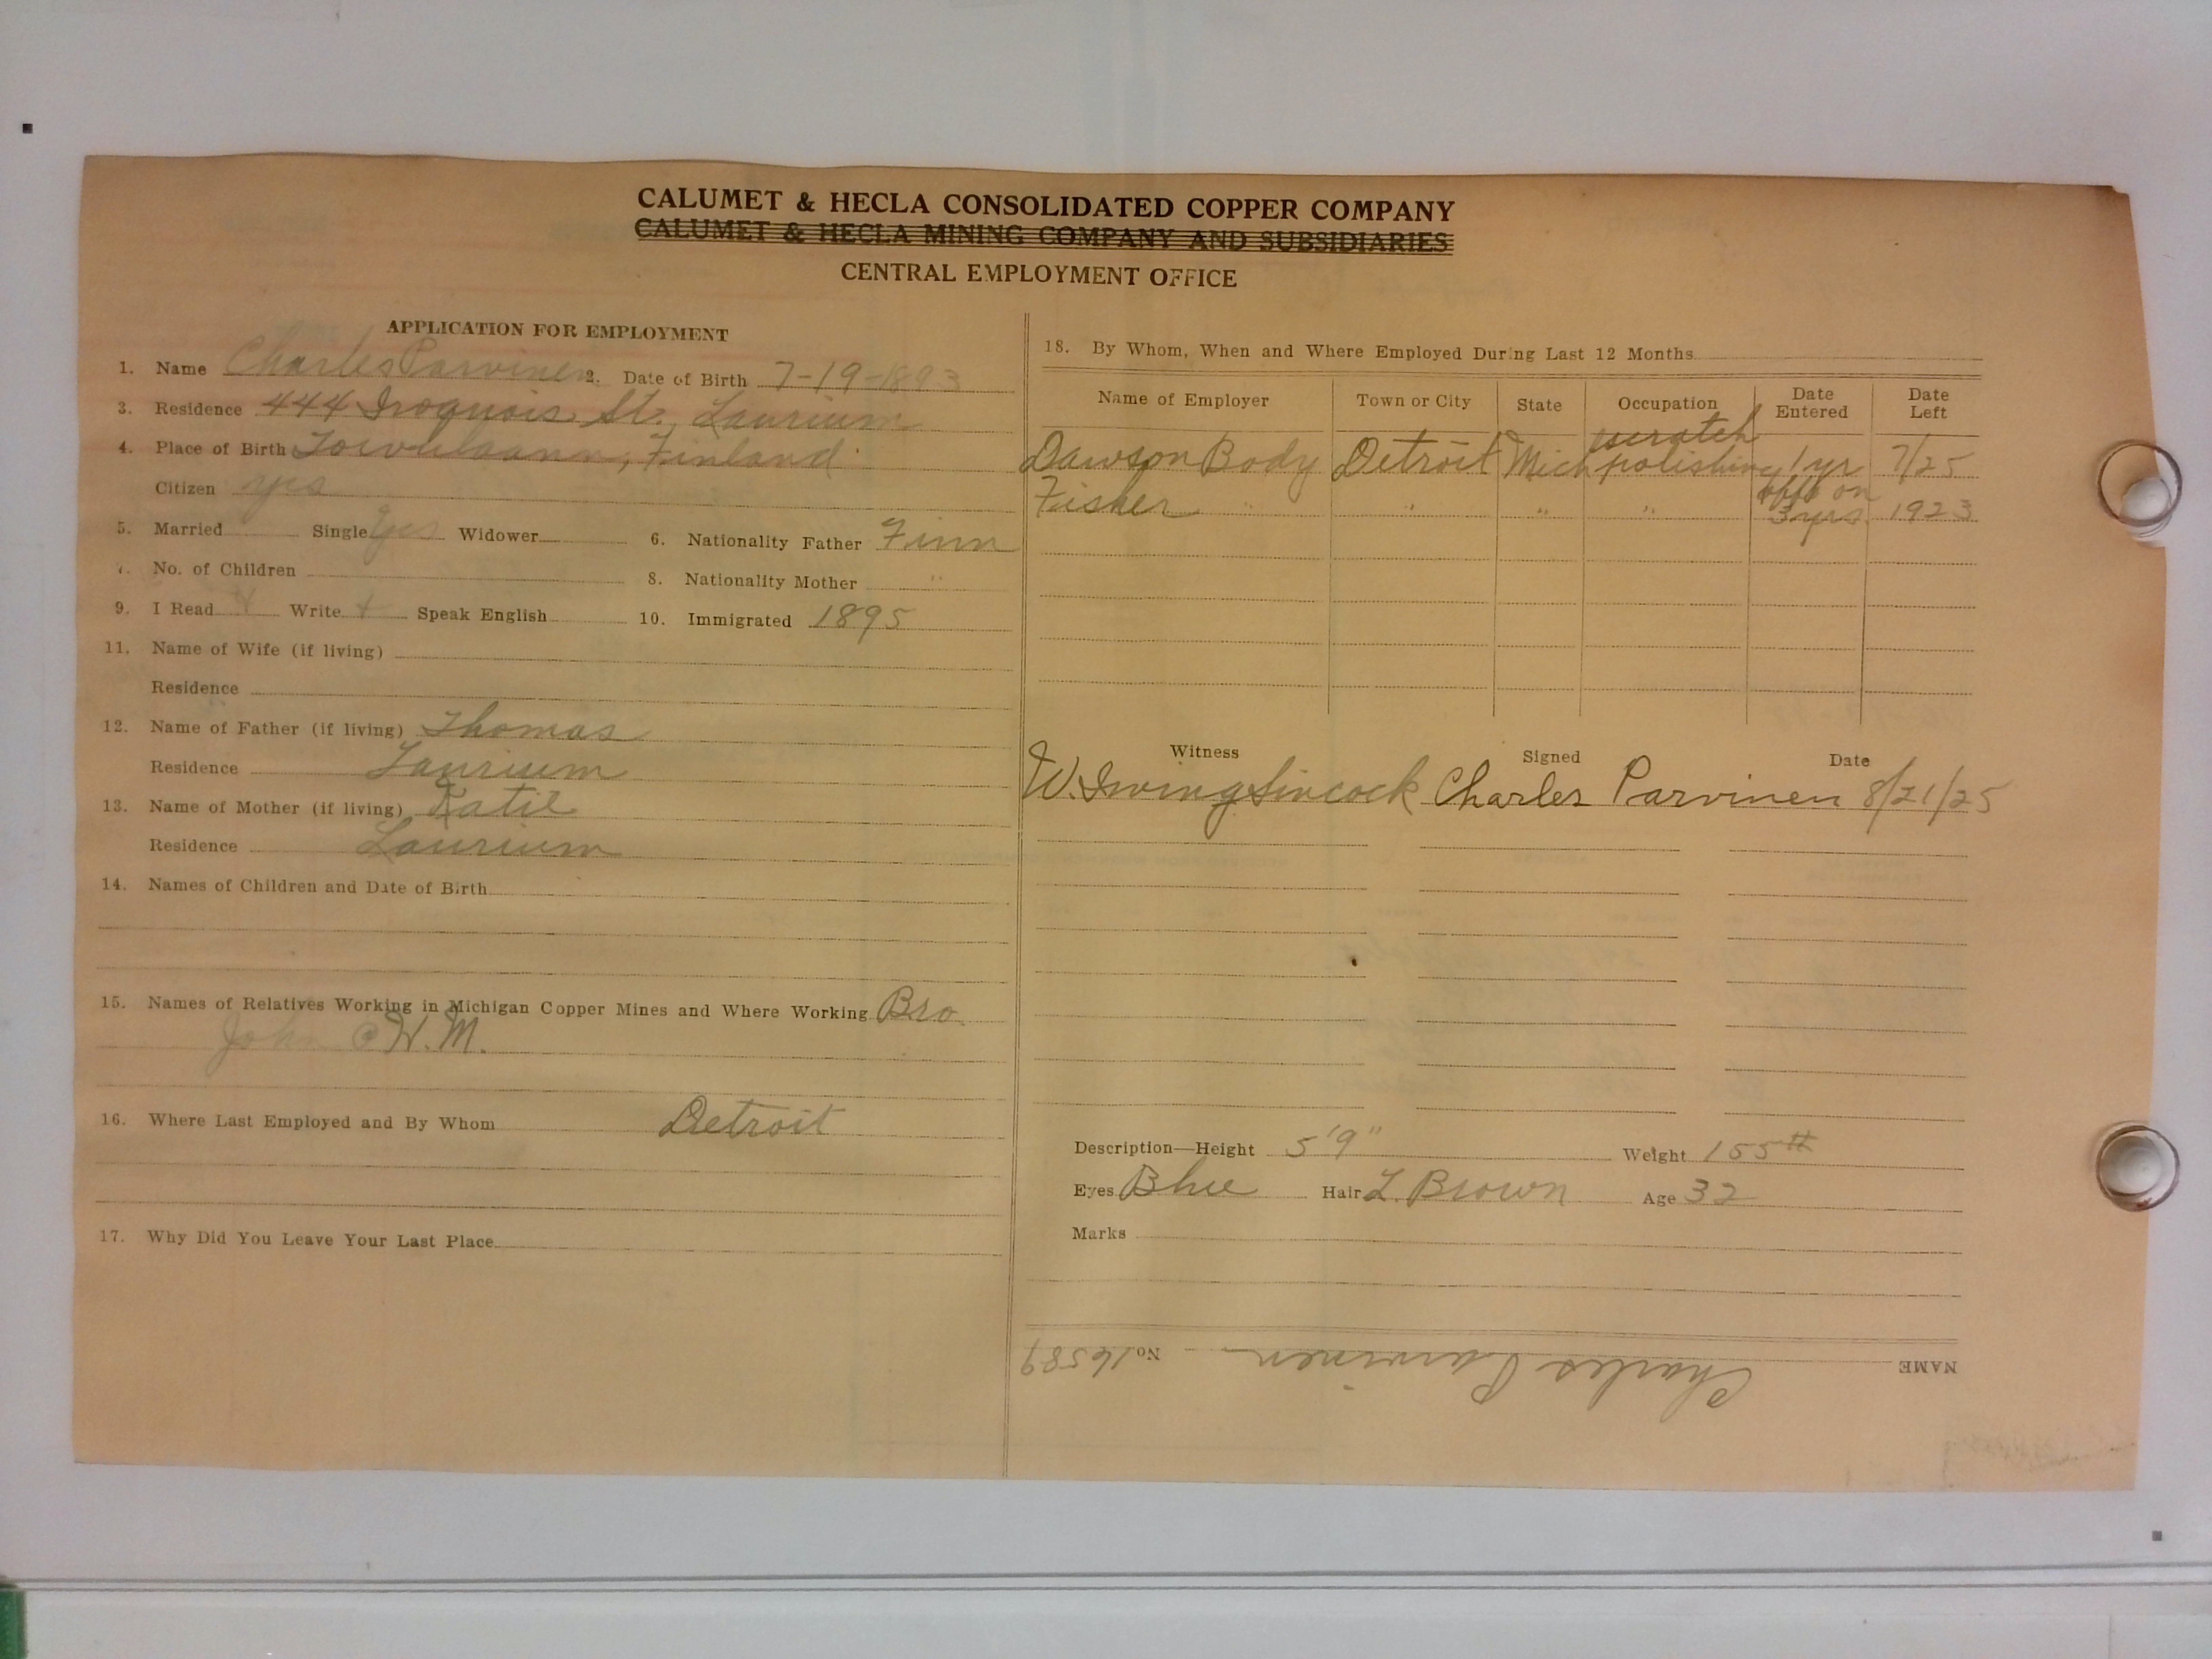 CALUMET & HECLA CONSOLIDATED COPPER COMPANY
CALUMET & HECLA MINING COMPANY AND SUBSIDIARIES
CENTRAL EMPLOYMENT OFFICE
APPLICATION FOR EMPLOYMENT
1. Name Charles Parvinen 2. Date of Birth 7-19-1893
3. Residence 444 Iroquois St. Laurium
4. Place of Birth Finland
Citizen yes
5. Married Single yes Widower 6. Nationality Father Finn
7. No. of Children 8. Nationality Mother "
9. I Read Write Speak English 10. Immigrated 1895
11. Name of Wife (if living)
Residence
12. Name of Father (if living) Thomas
Residence Laurium
13. Name of Mother (if living) Katie
Residence Laurium
14. Names of Children and Date of Birth
15. Names of Relatives Working in Michigan Copper Mines and Where Working Bro.
John @ H. M.
16. Where Last Employed and By Whom Detroit
17. Why Did You Leave Your Last Place
18. By Whom, When and Where Employed During Last 12 Months
Name of Employer Town or City State Occupation Date Entered Date Left
scratch
Dawson Body Detroit Mich polishing 1 yr 7/25
off & on
Fisher " " " " 3 yrs. 1923
Witness Signed Date
W. Irving Sincock Charles Parvinen 8/21/25
Description—Height 5'9" Weight 155#
Eyes Blue Hair L. Brown Age 32
Marks
NAME Charles Parvinen No. 16589